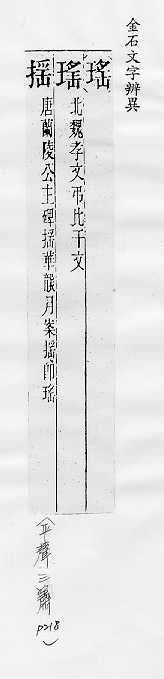 金石文字辨異
瑤
瑤北魏孝文弔比干文
搖唐蘭陵公主碑搖華𩠐月案搖即瑤
(平聲 二蕭
P218)